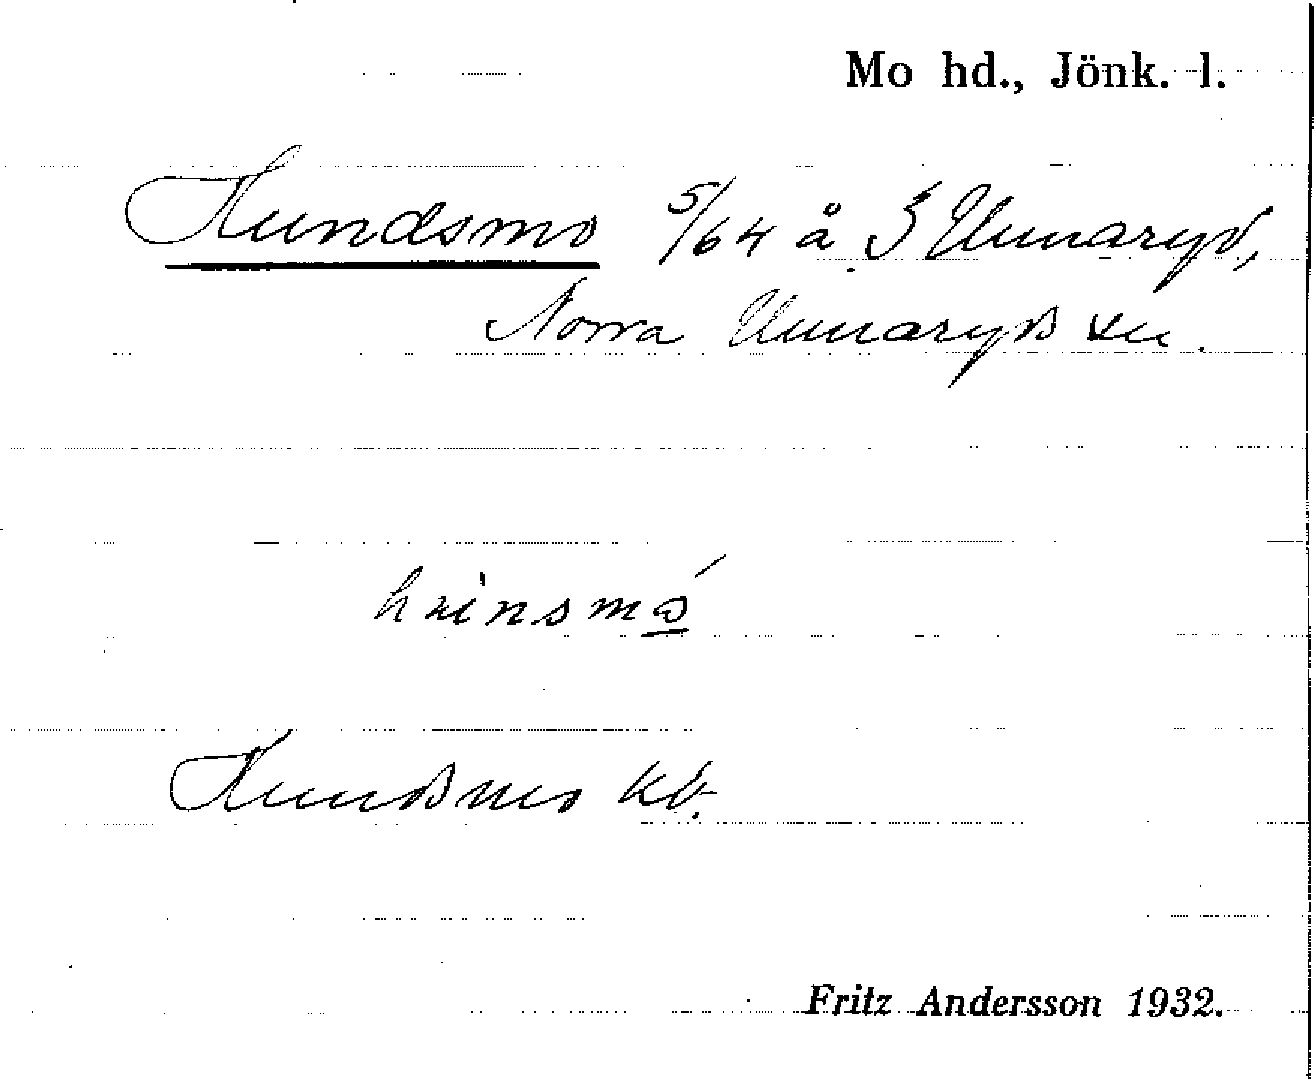 Mo hd., Jönk. l.
Hundsmo 5/64 å S Unnaryd,
Norra Unnaryds sn.
Hundsmo kb.
Fritz Andersson 1932.